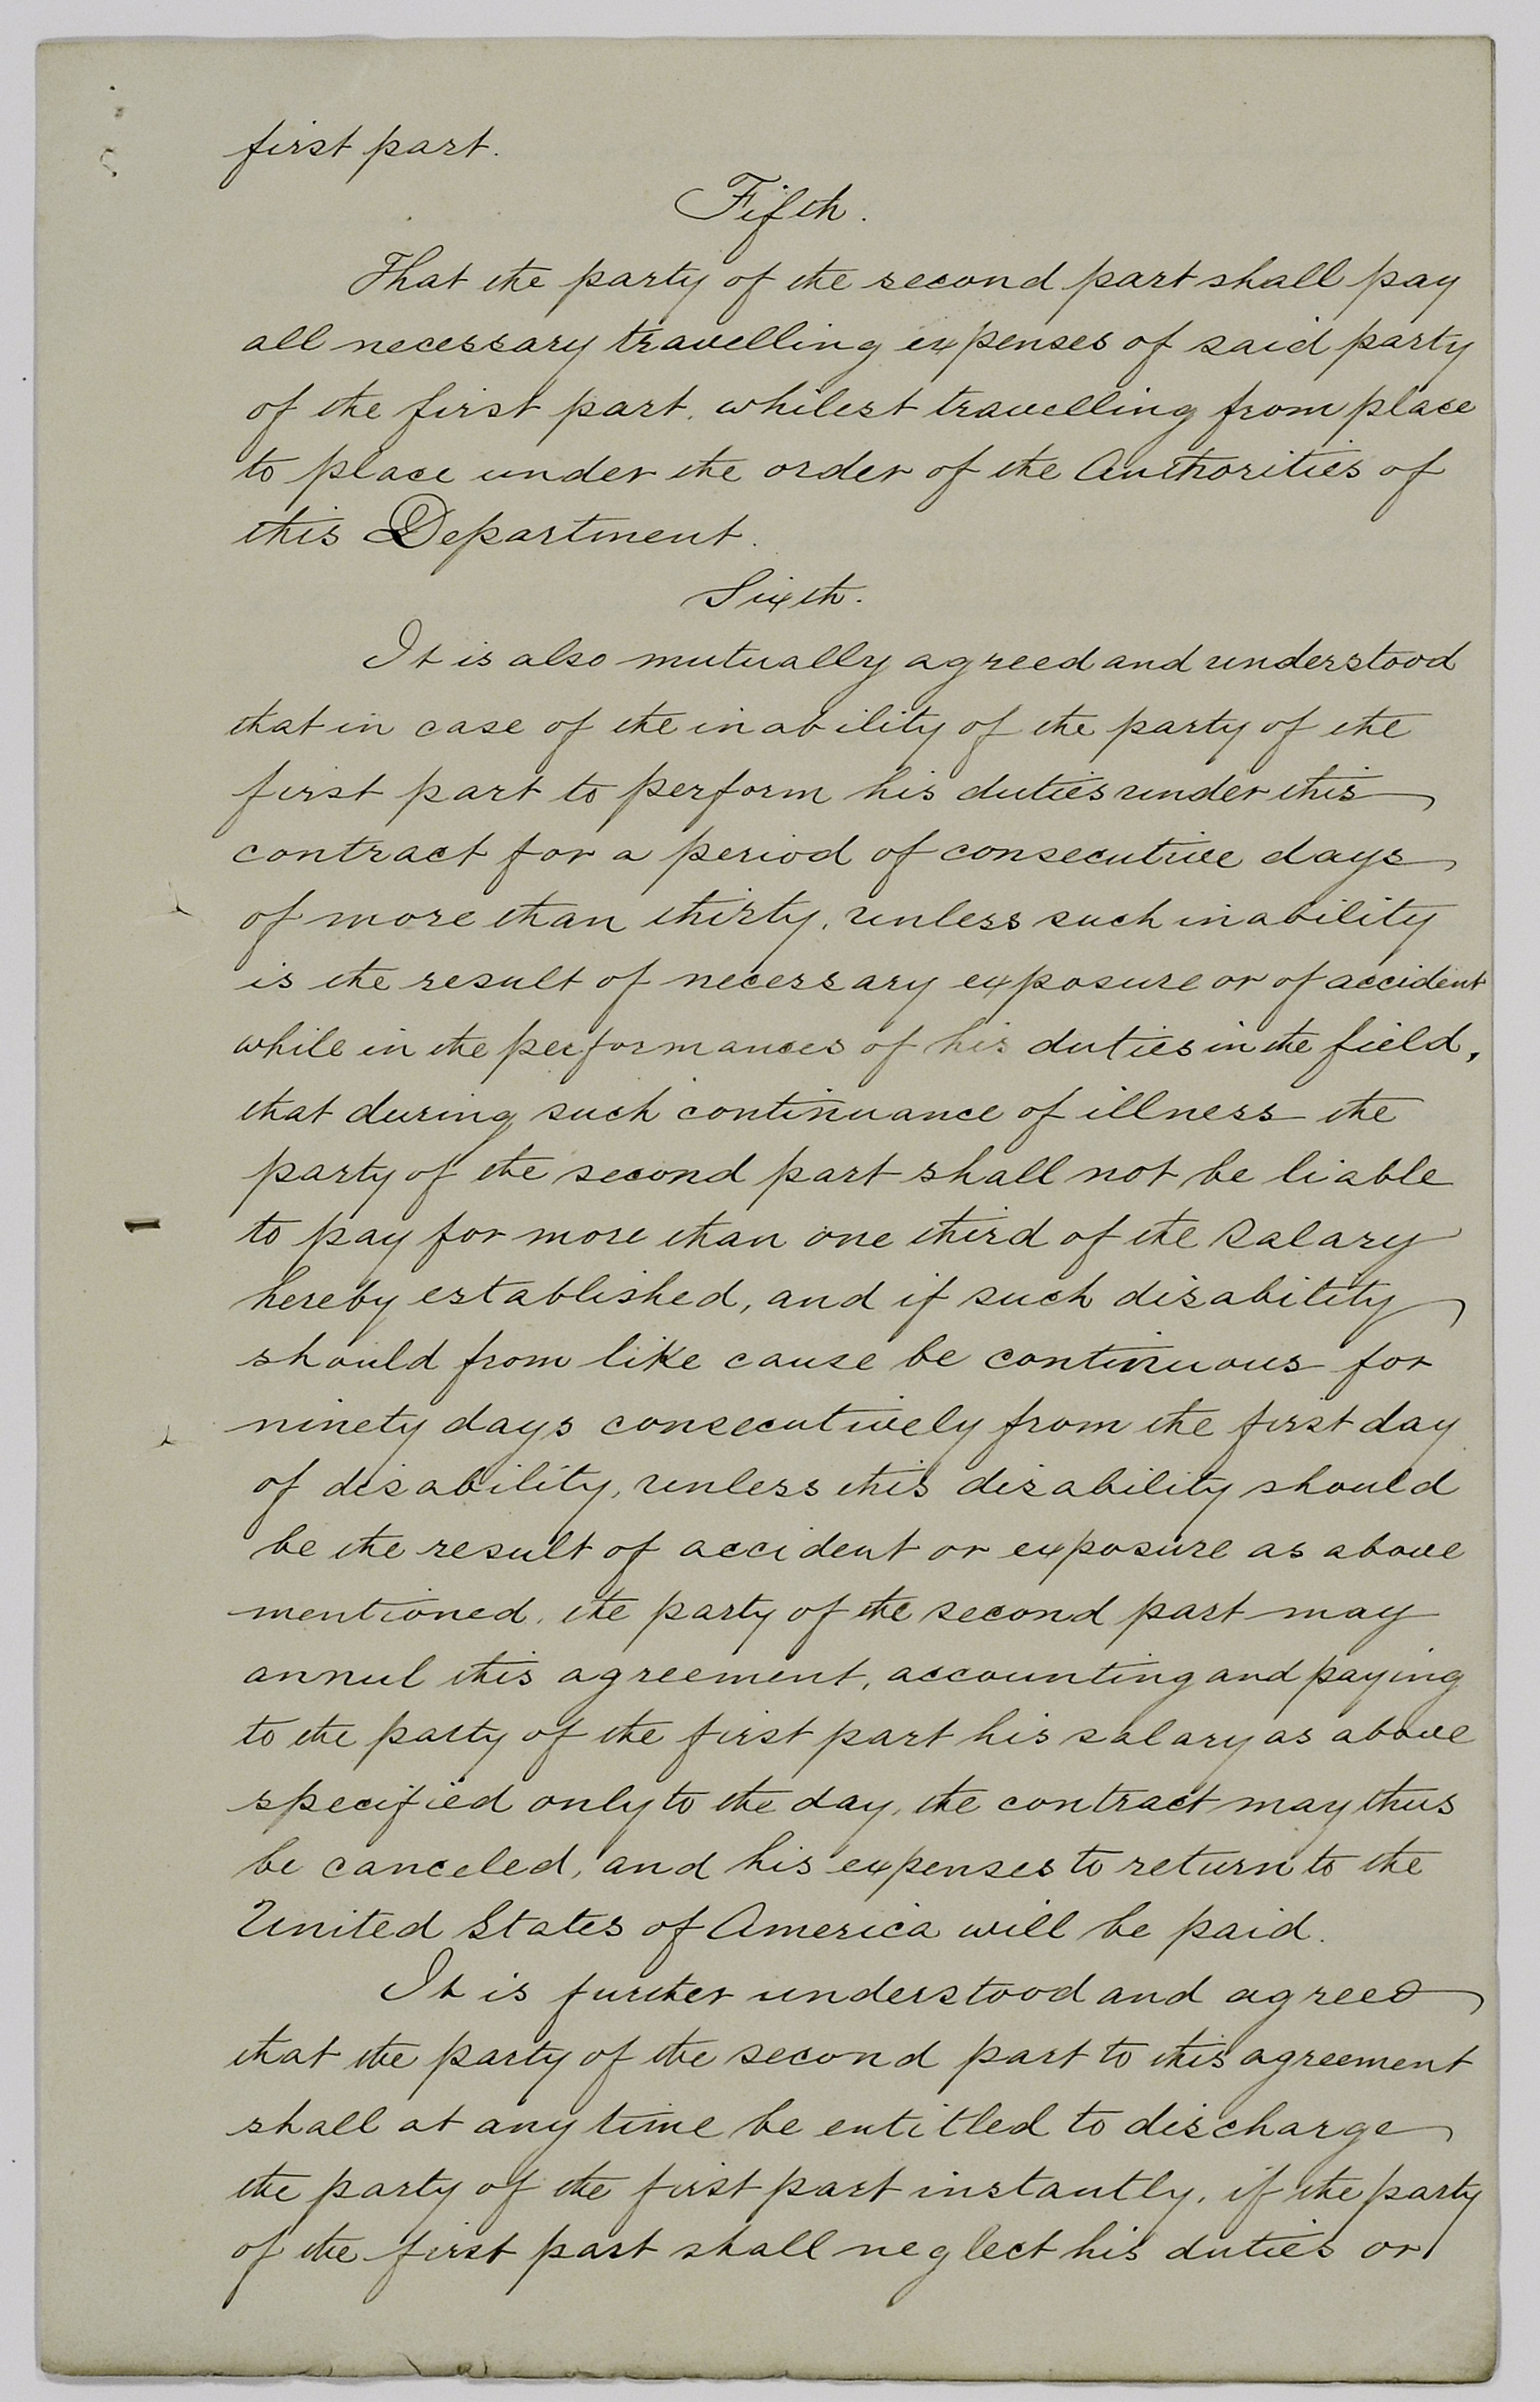 first part.
Fifth.
That the party of the second part shall pay
all necessary travelling expenses of said party
of the first part, whilest travelling from place
to place under the order of the Authorities of
this Department.
Sixth.
It is also mutually agreed and understood
that in case of the inability of the party of the
first part to perform his duties under this
contract for a period of consecutive days
of more than thirty, unless such inability
is the result of necessary exposure or of accident
while in the performances of his duties in the field,
that during such continuance of illness the
party of the second part shall not be liable
to pay for more than one third of the Salary
hereby established, and if such disability
should from like cause be continuous for
ninety days consecutively from the first day
of disability, unless this disability should
be the result of accident or exposure as above
mentioned, the party of the second part may
annul this agreement, accounting and paying
to the party of the first part his salary as above
specified only to the day, the contract may thus
be canceled, and his expenses to return to the
United States of America will be paid.
It is further understood and agreed
that the party of the second part to this agreement
shall at any time be entitled to discharge
the party of the first part instantly, if the party
of the first part shall neglect his duties or